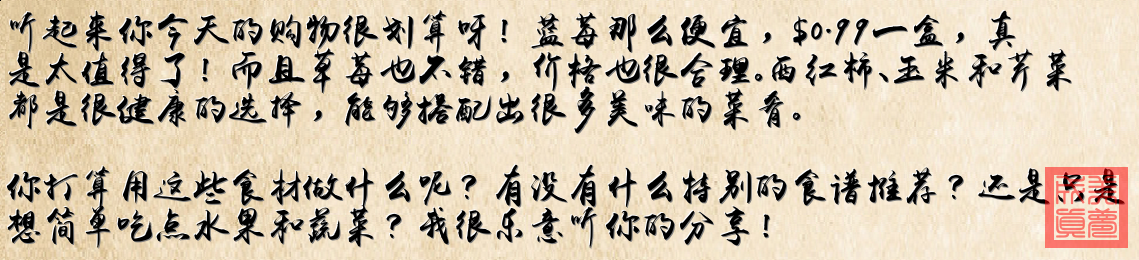 听起来你今天的购物很划算呀！蓝莓那么便宜，$0.99一盒，真
是太值得了！而且草莓也不错，价格也很合理。西红柿、玉米和芹菜
都是很健康的选择，能够搭配出很多美味的菜肴。
你打算用这些食材做什么呢？有没有什么特别的食谱推荐？还是只是
想简单吃点水果和蔬菜？我很乐意听你的分享！